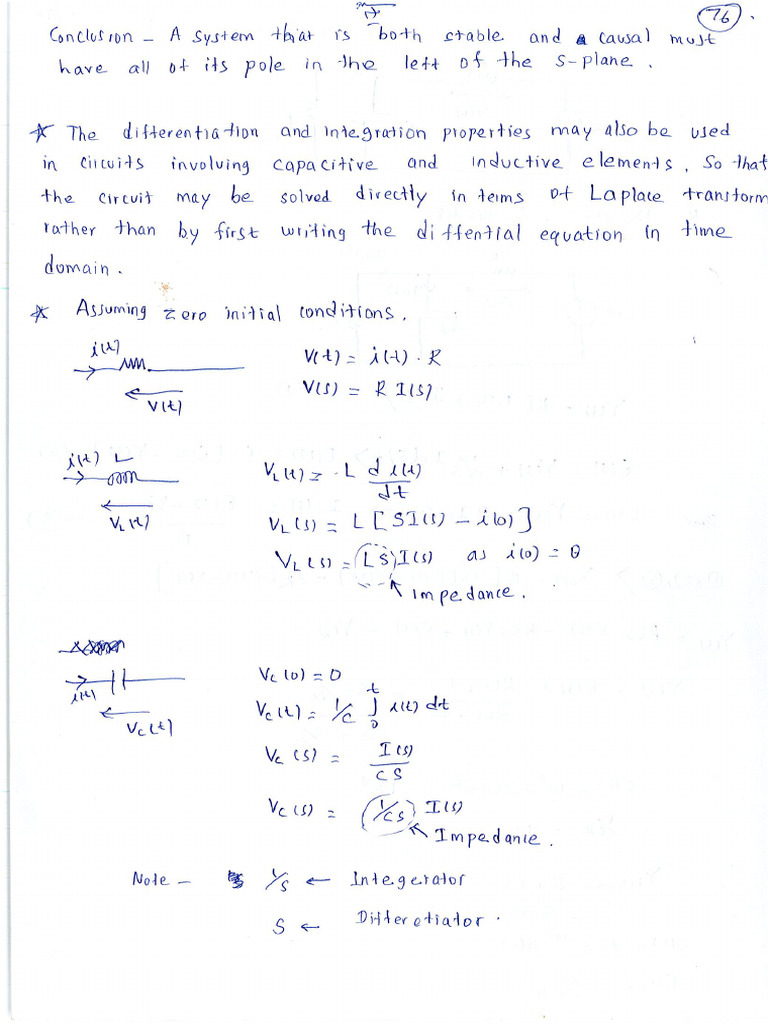 76
Conclusion - A system that is both stable and a causal must
have all of its pole in the left of the s-plane.
* The differentiation and integration properties may also be used
in circuits involving capacitive and inductive elements, So that
the circuit may be solved directly in tems of Laplace transform
rather than by first writing the diffential equation in time
domain.
* Assuming zero initial conditions.
i(t)
V(t) = i(t) . R
V(s) = R I(s)
V(t)
i(t) L
VL(t) = L d i(t)/dt
VL(t)
VL(s) = L[SI(s) - i(0)]
VL(s) = (LS) I(s) as i(0) = 0
Impedance.
Vc(0) = 0
i(t)
Vc(t) = 1/C ∫0t i(t) dt
Vc(t)
Vc(s) = I(s)/CS
Vc(s) = (1/CS) I(s)
Impedance.
Note - 1/S ← Integerator
S ← Differetiator.